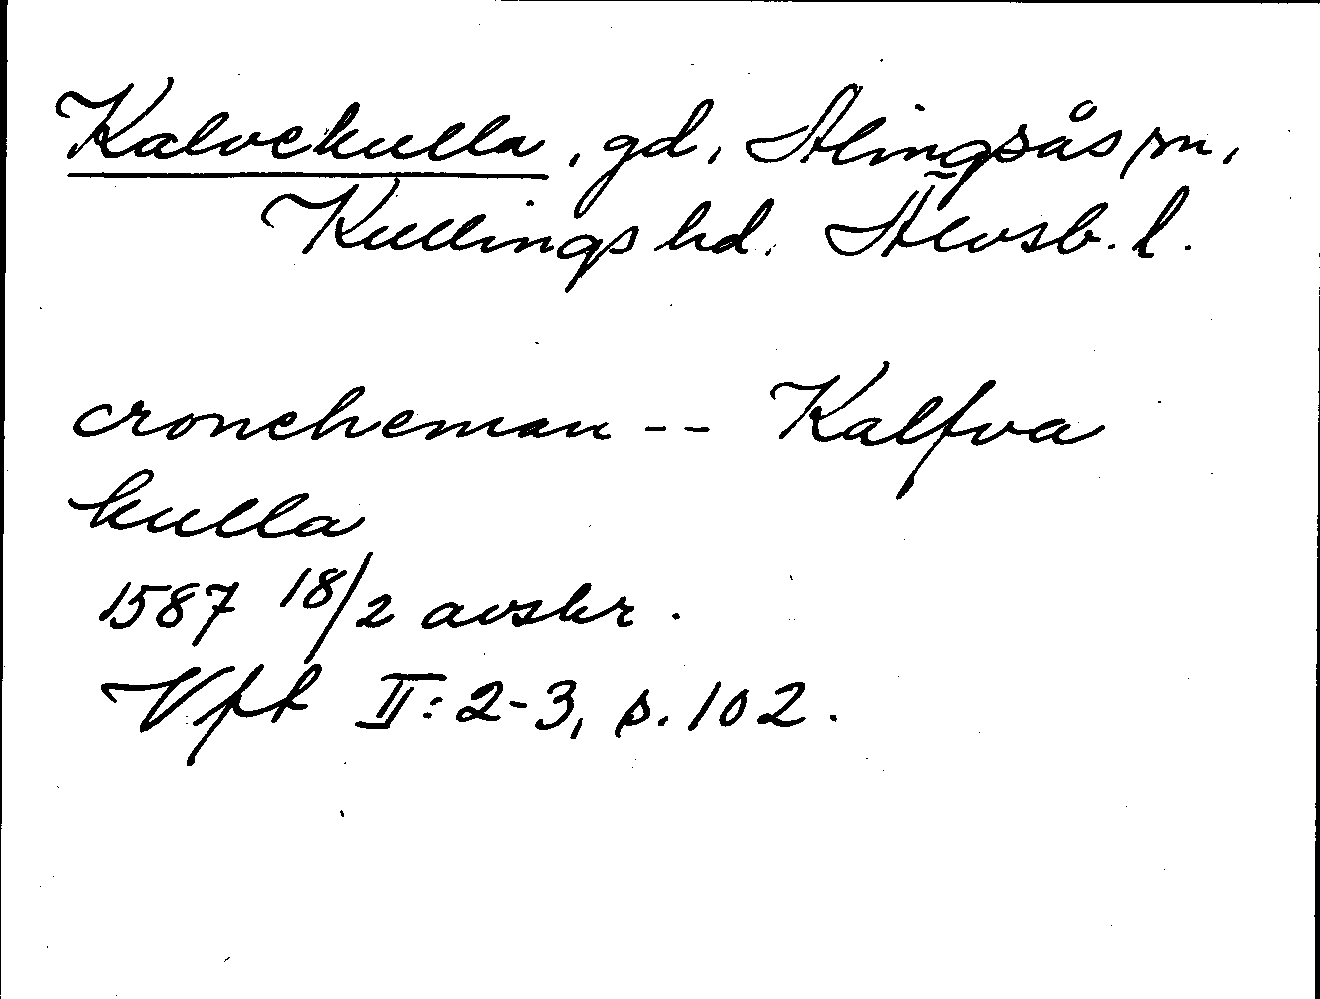 Kalvekulla, gd, Alingsås sn,
Kullings hd. Älvsb. l.
croneheman -- Kalfva
kulla
1587 18/2 avskr.
Vfh II: 2-3, s. 102.